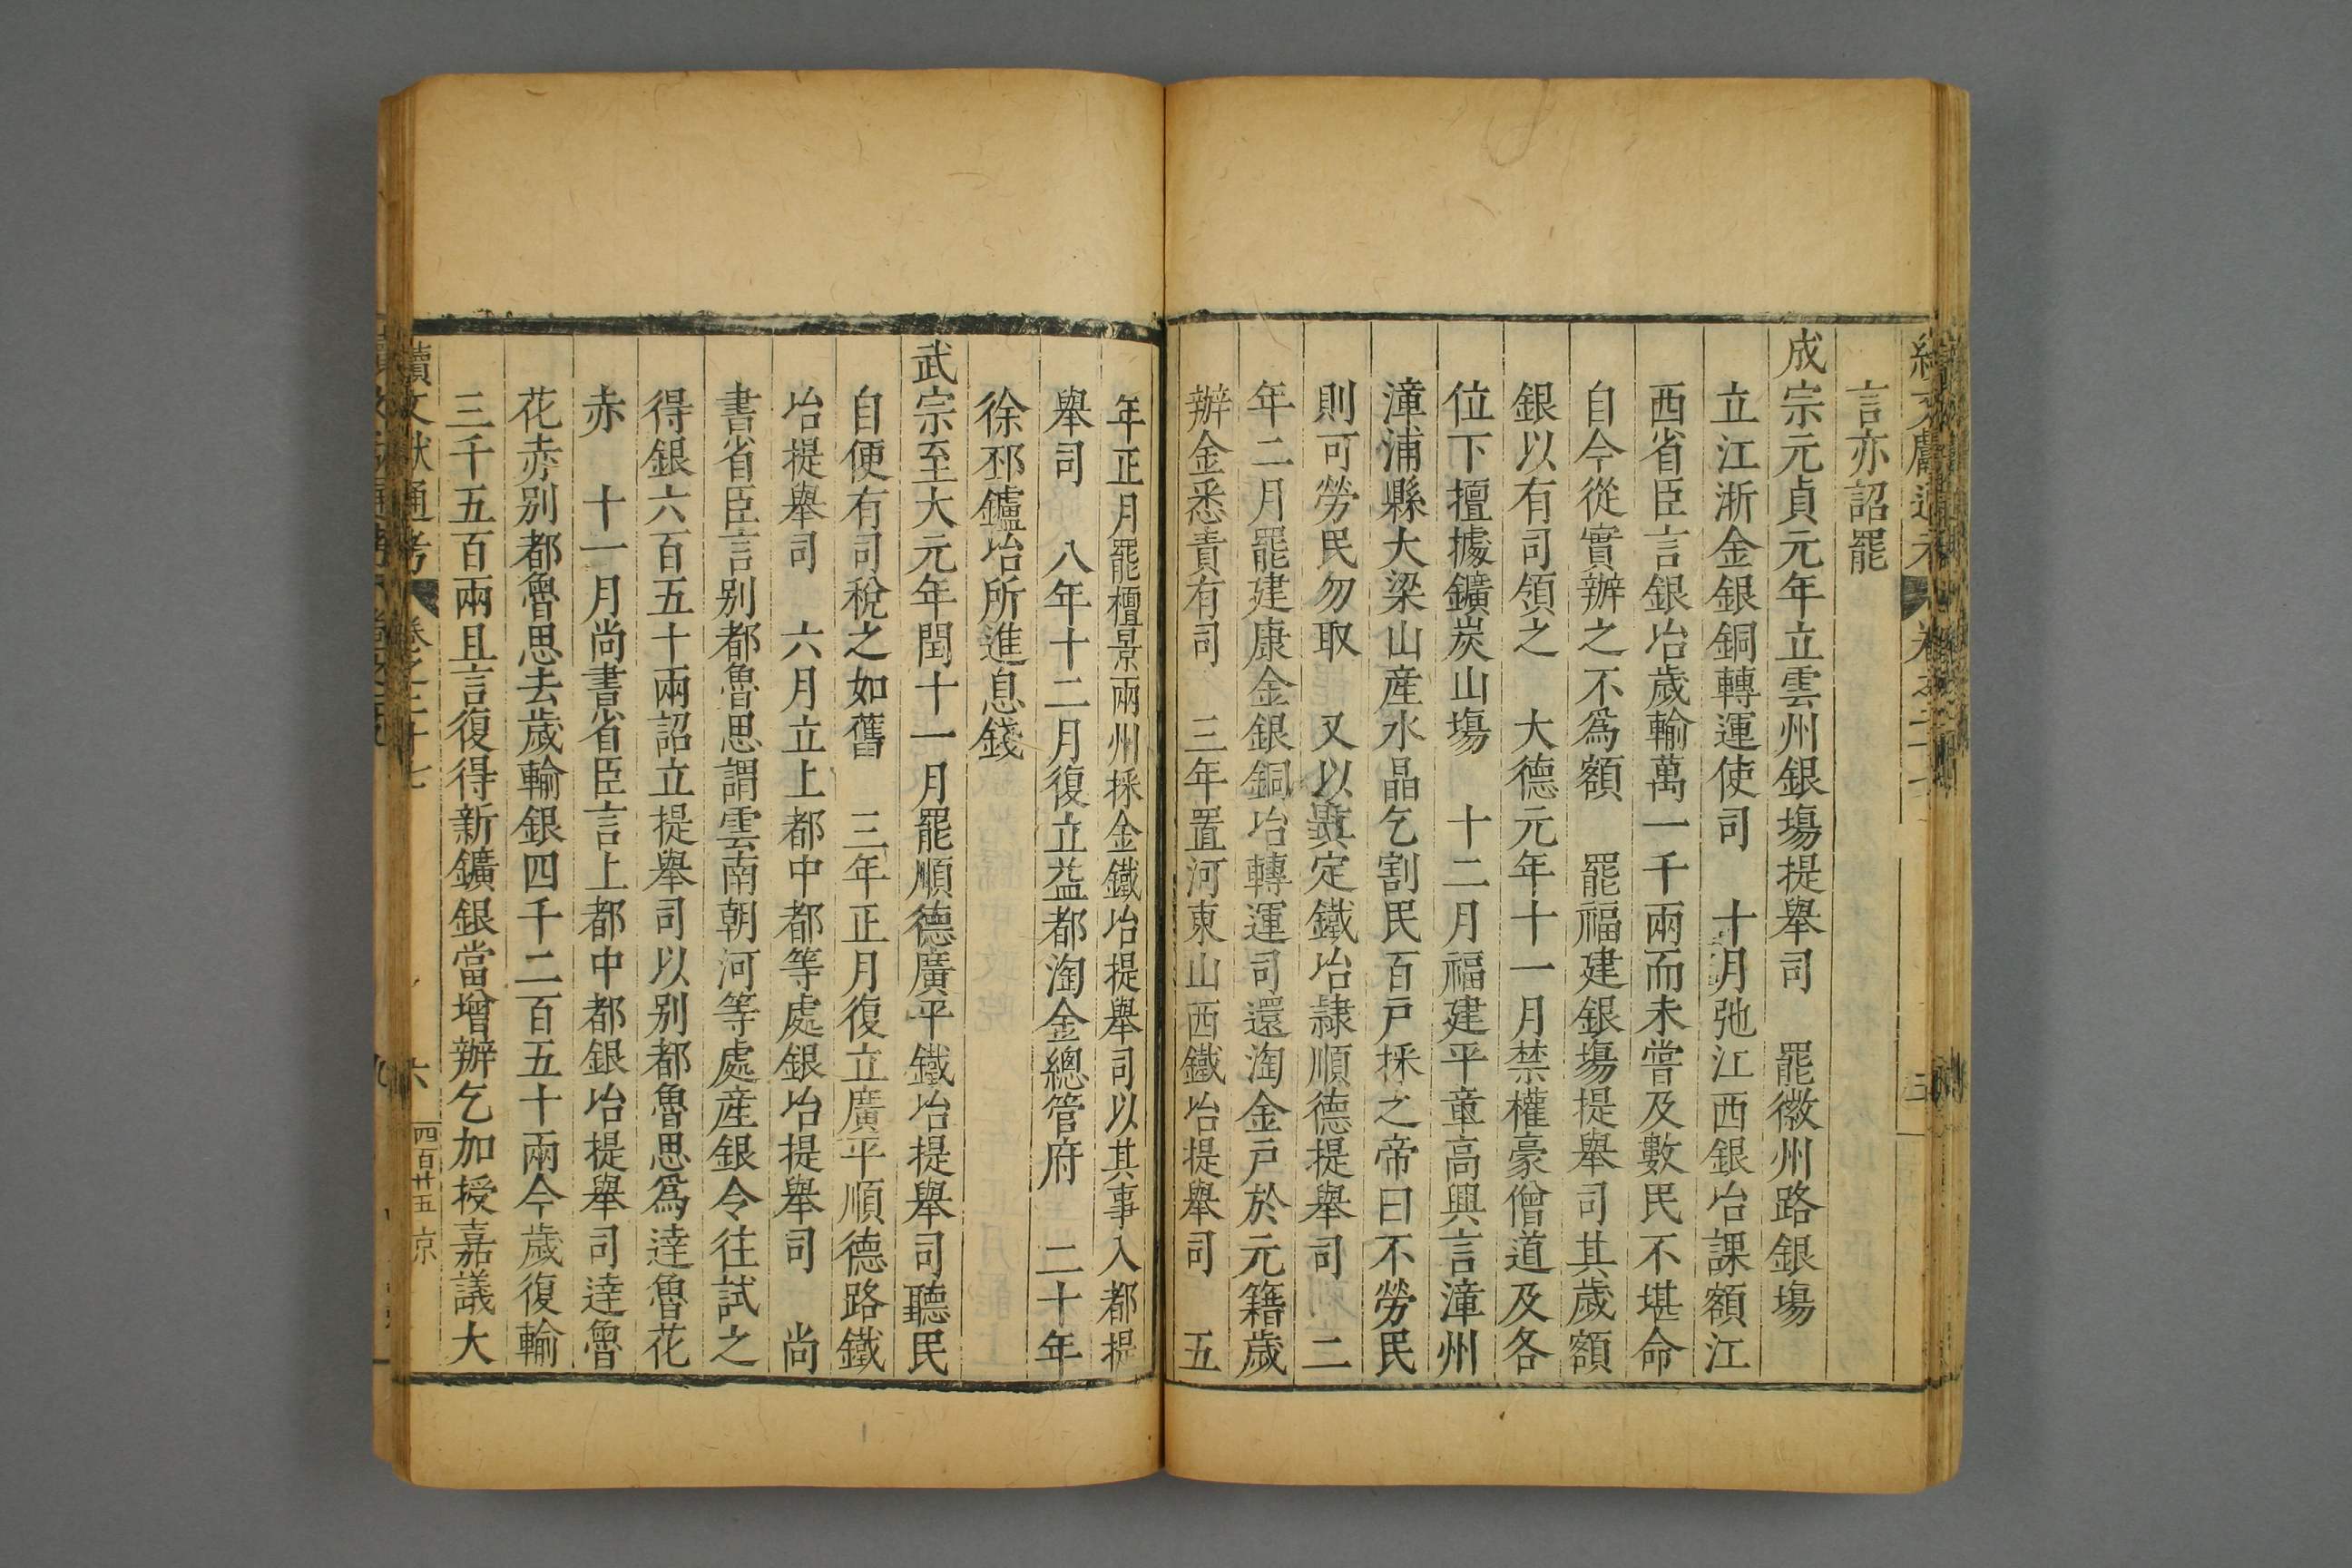 言亦詔罷
成宗元貞元年立雲州銀塲提舉司　罷徽州路銀塲
立江浙金銀銅轉運使司　十月弛江西銀冶課額江
西省臣言銀冶歲輸萬一千兩而未嘗及數民不堪命
自今從實辦之不爲額　罷福建銀塲提舉司其歲額
銀以有司領之　大德元年十一月禁權豪僧道及各
位下擅據鑛炭山塲　十二月福建平章高興言漳州
漳浦縣大梁山産水晶乞割民百戸採之帝曰不勞民
則可勞民勿取　又以眞定鐵冶隷順德提舉司　二
年二月罷建康金銀銅冶轉運司還淘金戸於元籍歲
辦金悉責有司　三年置河東山西鐵冶提舉司　五
年正月罷檀景兩州採金鐵冶提舉司以其事入都提
舉司　八年十二月復立益都淘金總管府　二十年
徐邳鑪冶所進息錢
武宗至大元年閏十一月罷順德廣平鐵冶提舉司聽民
自便有司稅之如舊　三年正月復立廣平順德路鐵
冶提舉司　六月立上都中都等處銀冶提舉司　尚
書省臣言别都魯思謂雲南朝河等處産銀令往試之
得銀六百五十兩詔立提舉司以别都魯思爲逹魯花
赤　十一月尚書省臣言上都中都銀冶提舉司逹魯
花赤别都魯思去歲輸銀四千二百五十兩今歲復輸
三千五百兩且言復得新鑛銀當增辦乞加授嘉議大
續文獻通考　卷之二十七　六　四百廿五　京